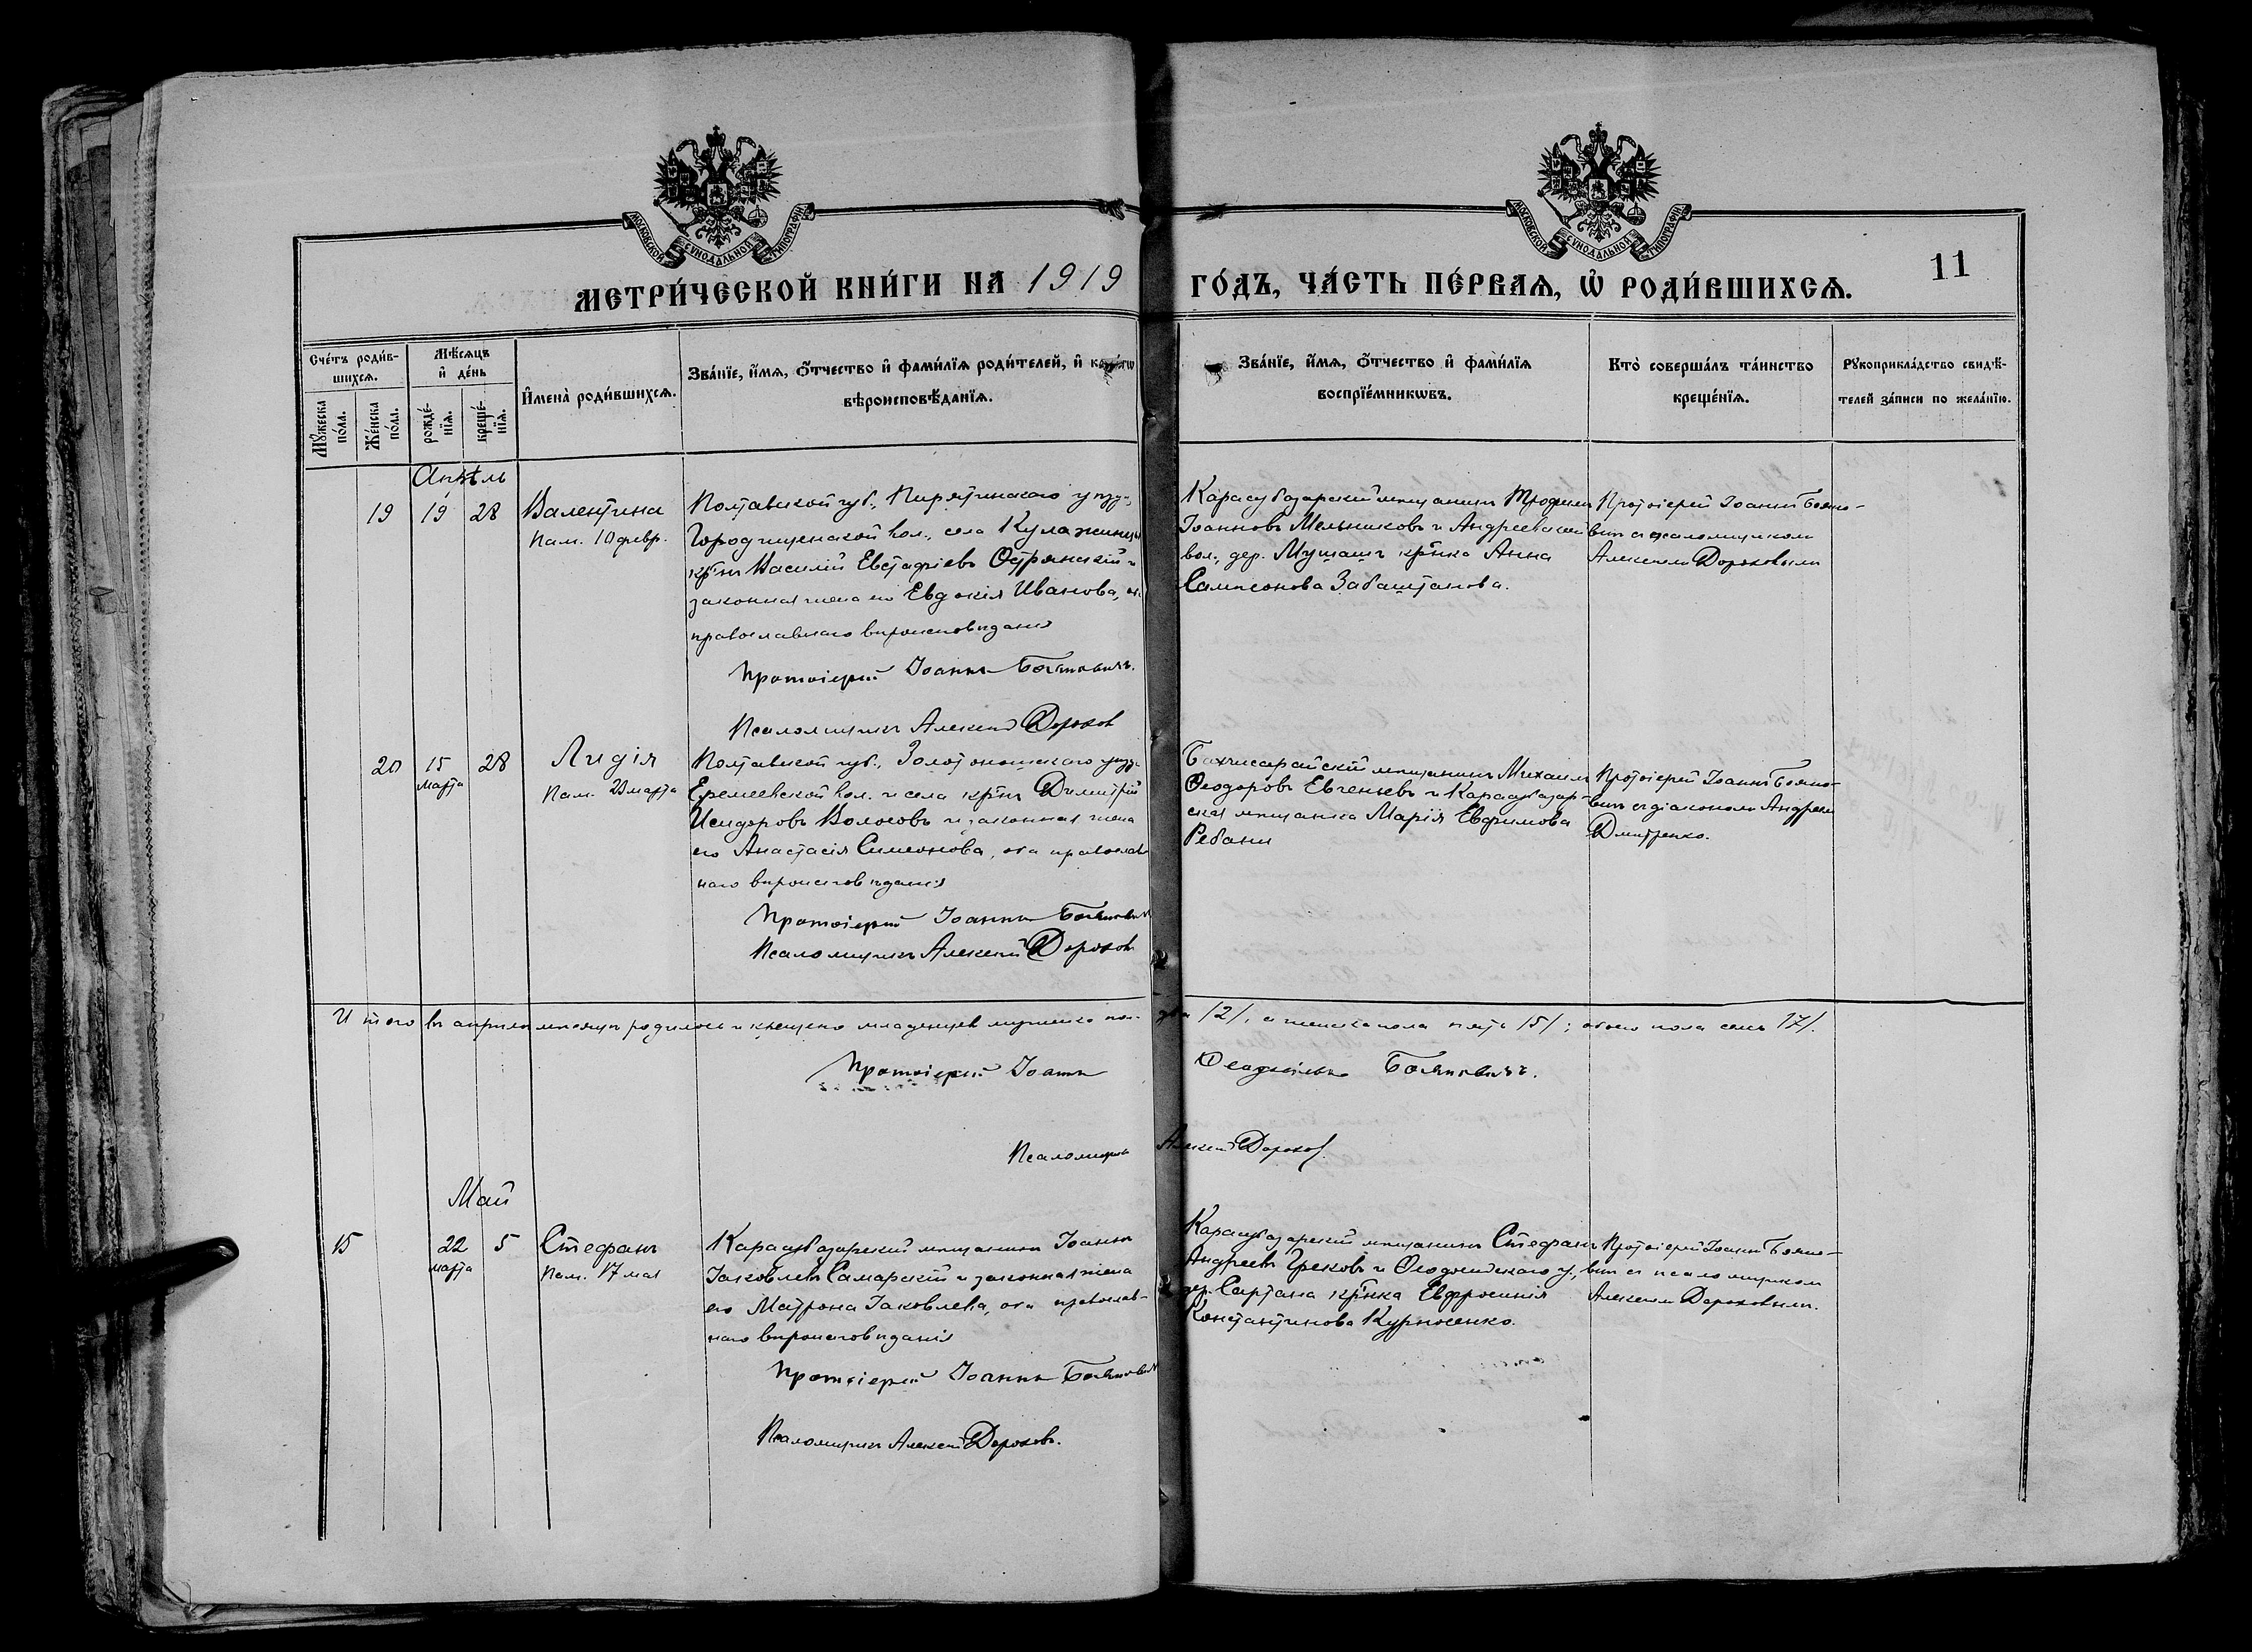 МОСКОВСКОЙ СѴНОДАЛЬНОЙ ТИПОГРАФІИ
МОСКОВСКОЙ СѴНОДАЛЬНОЙ ТИПОГРАФІИ
МЕТРИ́ЧЕСКОЙ КНИ́ГИ НА 1919 ГО́ДЪ, ЧА́СТЬ ПЕ́РВАѦ, Ѡ҆ РОДИ́ВШИХСѦ.
11
Сче́тъ роди́в-
шихсѧ.
Мѣ́сѧцъ
и҆ де́нь
И҆мена̀ роди́вшихсѧ.
Зва́нїе, и҆́мѧ, ѻ҆́тчество и҆ фами́лїѧ роди́телей, и҆
вѣроисповѣ́данїѧ.
Зва́нїе, и҆́мѧ, ѻ҆́тчество и҆ фами́лїѧ
воспрїе́мникѡвъ.
Кто̀ соверша́лъ та́инство
креще́нїѧ.
Рꙋкоприкла́дство свидѣ́-
телей за́писи по жела́нїю.
Мꙋ́жеска
по́ла.
Же́нска
по́ла.
рожде́-
нїѧ.
креще́-
нїѧ.
Апрѣль
19 19 28 Валентина
Пам. 10 февр.
Полтавской губ., Пирятинскаго уѣзда,
Городищенской вол., села Кулажинцы
кр-нъ Василій Евстафіевъ Острянскій и
законная жена его Евдокія Иванова, оба
православнаго вѣроисповѣданія
Протоіерей Іоаннъ Бояновичъ.
Псаломщикъ Алексей Дороховъ
Карасубазарскій мещанинъ Трофимъ
Іоанновъ Мельниковъ и Андреевской
вол., дер. Мушашъ кр-нка Анна
Сампсонова Забаштанова.
Протоіерей Іоаннъ Бояно-
вичъ съ псаломщикомъ
Алексеемъ Дороховымъ
20 15 марта 28 Лидія
Пам. 23 марта
Полтавской губ., Золотоношскаго уѣзда
Еремеевской вол. и села кр-нъ Димитрій
Исидоровъ Волосовъ и законная жена
его Анастасія Симеонова, оба православ
наго вѣроисповѣданія
Протоіерей Іоаннъ Бояновичъ
Псаломщикъ Алексей Дороховъ
Бахчисарайскій мещанинъ Михаилъ
Ѳеодоровъ Евгеньевъ и Карасубазар-
ская мещанка Марія Евфимова
Ребани
Протоіерей Іоаннъ Бояно-
вичъ съ діакономъ Андреемъ
Дмитренко.
Итого въ апрѣлѣ месяцѣ родилось и крещено младенцев мужеска пола два /2/, а женска пола пять /5/; обоего пола семь /7/.
Протоіерей Іоаннъ Бояновичъ.
Псаломщикъ Алексей Дорохов
Май
15 22 марта 5 Стефанъ
Пам. 17 мая
Карасубазарскій мещанинъ Іоаннъ
Іаковлевъ Самарскій и законная жена
его Матрона Іаковлева, оба православ-
наго вѣроисповѣданія
Протоіерей Іоаннъ Бояновичъ
Псаломщикъ Алексей Дороховъ.
Карасубазарскій мещанинъ Стефанъ
Андреевъ Грековъ и Ѳеодосійскаго у.,
дер. Сартана кр-нка Евфросинія
Константинова Курносенко.
Протоіерей Іоаннъ Бояно-
вичъ съ псаломщикомъ
Алексеемъ Дороховымъ.